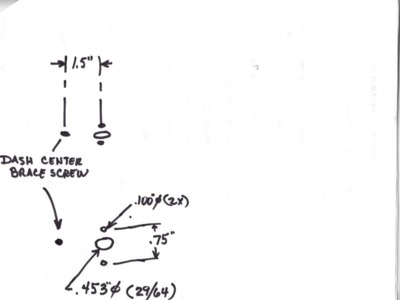 1.5"
DASH CENTER
BRACE SCREW
.100"ø (2x)
.75"
.453"ø (29/64)